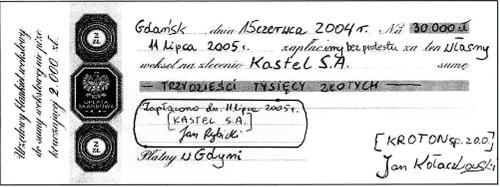 Urzędowy blankiet wekslowy
do sumy wekslowej nie prze
kraczającej 2 000 zł.
2
ZŁ
OPŁATA
SKARBOWA
2
ZŁ
Gdańsk dnia 1 Szerwca 2004 r. Na 30 000 zł
11 lipca 2005 r. zapłacimy bez protestu za ten własny
weksel na zlecenie Kastel S.A. sumę
TRZYDZIEŚCI TYSIĘCY ZŁOTYCH
Zapłacono dn. 11 lipca 2005 r.
[KASTEL S.A.]
Jan Rybicki
Płatny w Gdyni
[KROTON sp. z o.o]
Jan Kołaczkowski